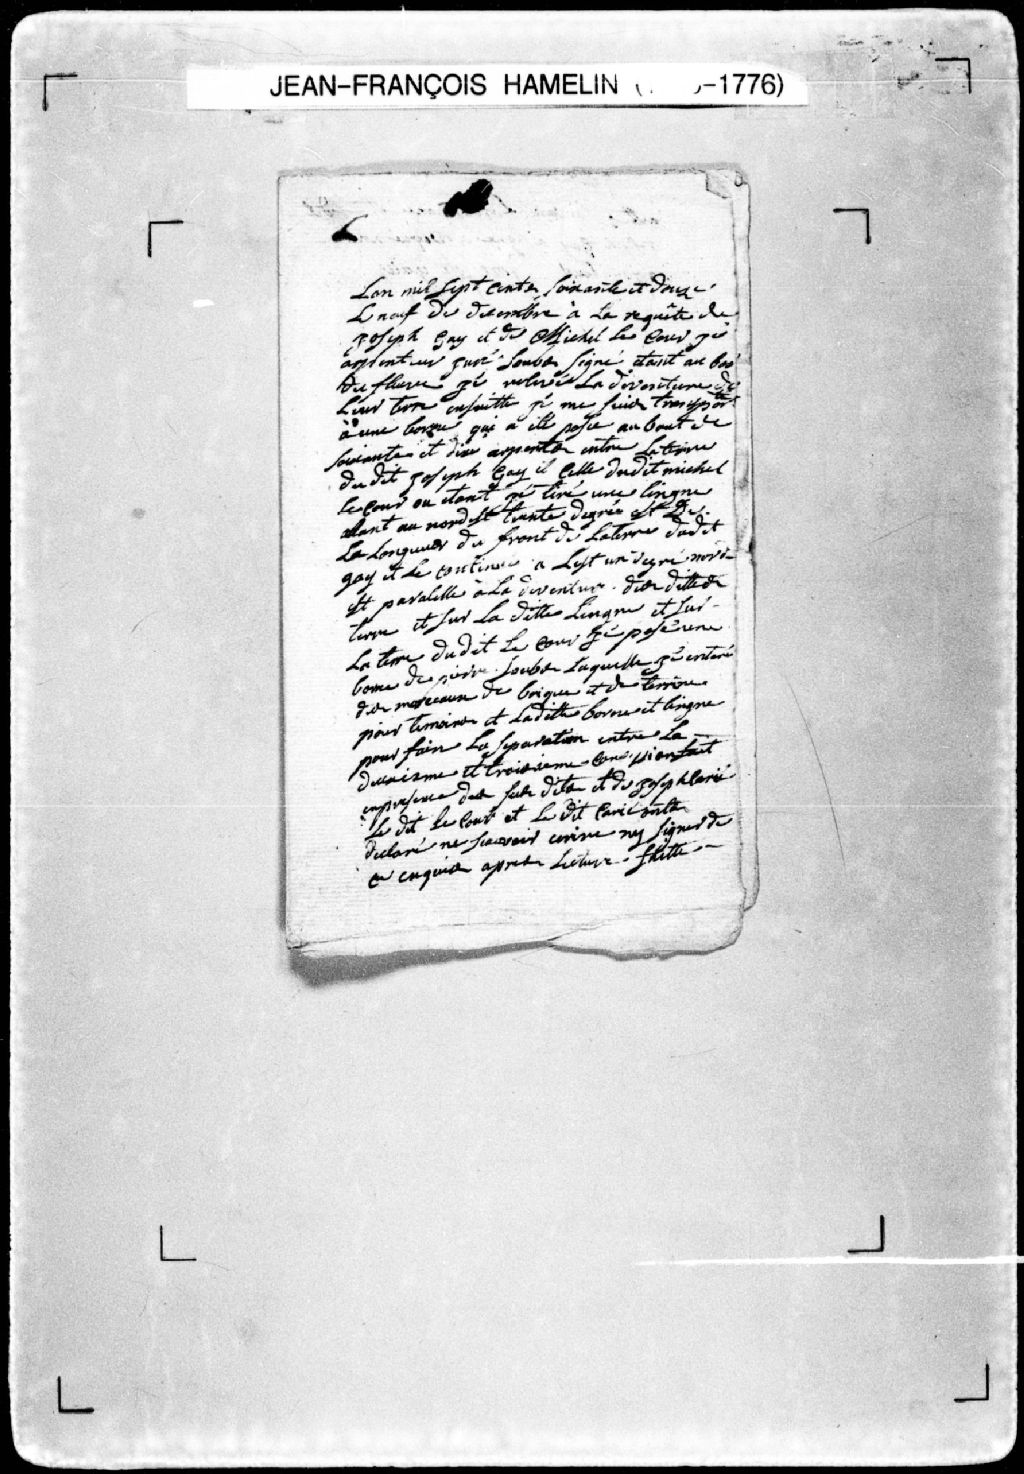 JEAN-FRANÇOIS HAMELIN ( -1776)
Lan mil sept cents soixante et douze
Le neuf de decembre à La requête de
Joseph Gay et de Michel Le Cour jé
arpenteur juré soubs signé etant au bor
du fleuve jé relevé La deventure de
Leur terre ensuitte je me suis transport
à une borne qui a été posée au bout de
soixante et dix arpents entre La terre
du dit Joseph Gay et Celle du dit michel
Le Cour ou etant jé tiré une lingne
allant au nord est trente degrée est de
La Longueur du front de La terre dudit
gay et Le continué a Lest un degré nord
est paralelle à La deventure des dittes
terre et sur La ditte Lingne et sur
La terre du dit Le Cour jé posé une
borne de pierre soubs Laquelle jé enteré
des morceaux de brique et de terrine
pour temoins et Laditte borne et lingne
pour faire La separation entre La
deuxieme et troisieme concession fait
en presence des sus dits et de Joseph
Le dit Le Cour et Le dit onts
declaré ne scavoir ecrire ny signer de
ce enquis apres Lecture faitte